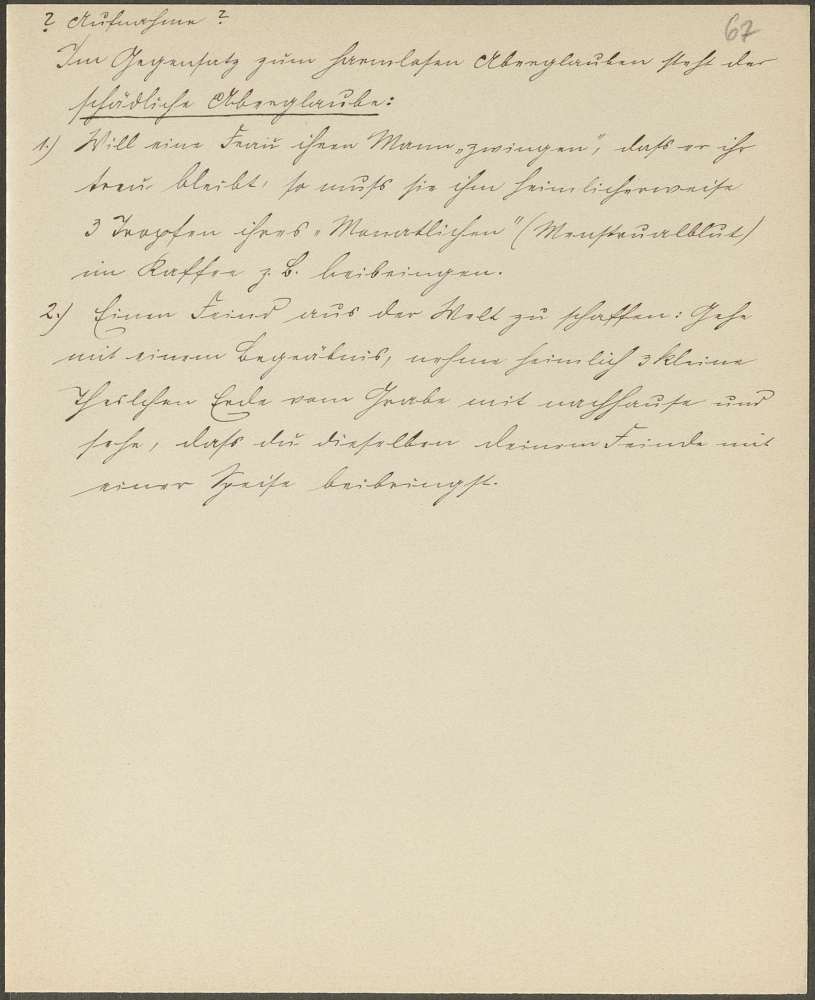 ? Aufnahme ?
67
Im Gegensatz zum harmlosen Aberglauben steht der
schädliche Aberglaube:
1.) Will eine Frau ihren Mann „zwingen", daß er ihr
treu bleibt, so muß sie ihm heimlicherweise
3 Tropfen ihres „Monatlichen" (Menstrualblut)
im Kaffee z. B. beibringen.
2.) Einen Feind aus der Welt zu schaffen: Gehe
mit einem Begräbnis, nehme heimlich 3 kleine
Theilchen Erde vom Grabe mit nachhause und
sehe, daß du dieselben deinem Feinde mit
einer Speise beibringst.